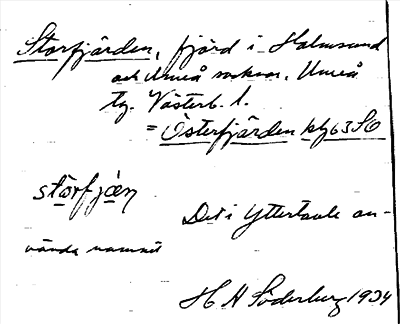 Storfjärden, fjärd i Holmsund
och Umeå socknar, Umeå
tg. Västerb. l.
= Österfjärden kbl 63 SO
störfjæn
Det i Yttertavle an-
vända namnet
H A Söderberg 1934